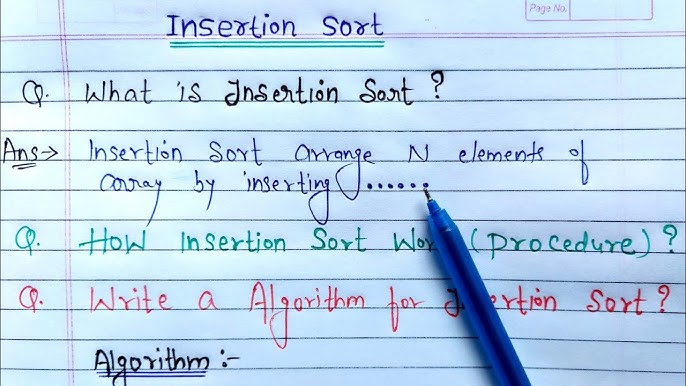 Page No.
Insertion Sort
Q. What is Insertion Sort ?
Ans→ Insertion Sort arrange N elements of
array by inserting ......
Q. How Insertion Sort Wor (Procedure) ?
Q. Write a Algorithm for Insertion Sort ?
Algorithm :-